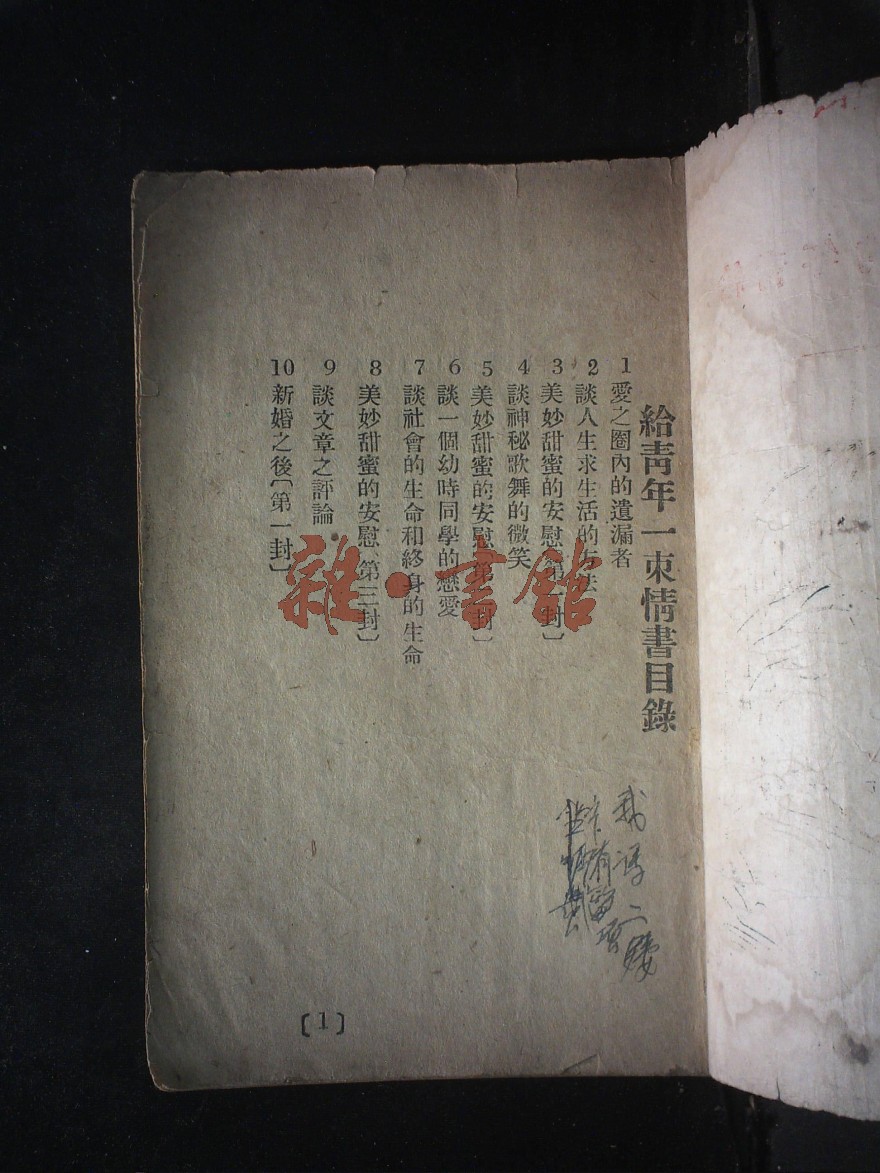 給靑年一束情書目錄
1 愛之圈內的遺漏者
2 談人生求生活的方法
3 美妙甜蜜的安慰〔第一封〕
4 談神秘歌舞的微笑
5 美妙甜蜜的安慰〔第二封〕
6 談一個幼時同學的戀愛
7 談社會的生命和終身的生命
8 美妙甜蜜的安慰〔第三封〕
9 談文章之評論
10 新婚之後〔第一封〕
〔1〕
雜·書館